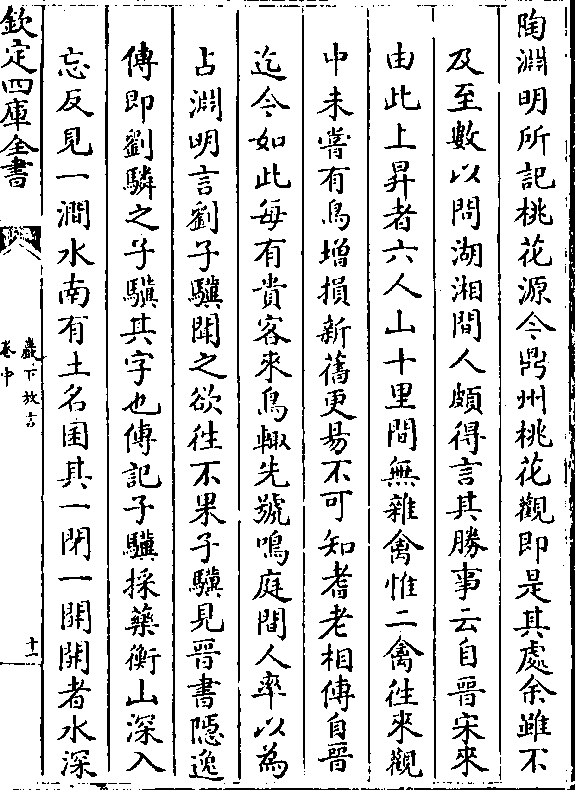 陶淵明所記桃花源今鼎州桃花觀即是其處余雖不
及至數以問湖湘間人頗得言其勝事云自晉宋來
由此上昇者六人山十里間無雜禽惟二禽徃來觀
中未嘗有鳥增損新舊更易不可知耆老相傳自晉
迄今如此每有貴客來鳥輙先號鳴庭間人率以為
占淵明言劉子驥聞之欲徃不果子驥見晉書隱逸
傳即劉驎之子驥其字也傳記子驥採藥衡山深入
忘反見一澗水南有土名囷其一閉一開開者水深
欽定四庫全書
巖下放言
卷中
十一